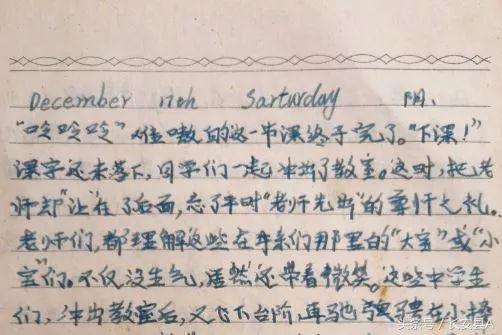 December 11th Sarturday 阴、
"呤呤呤"难熬的这一节课终于完了。"下课!"
课字还未落下,同学们一起冲出了教室。这时,把老
师却"让"在了后面,忘了平时"老师先出"的尊师之礼。
老师们,都理解这些在爷们那里的"大宝"或"小
宝"们。不仅没生气,居然还带着微笑。这些中学生
们,冲出教室后,又飞下台阶,再驰
头条号/长安县A